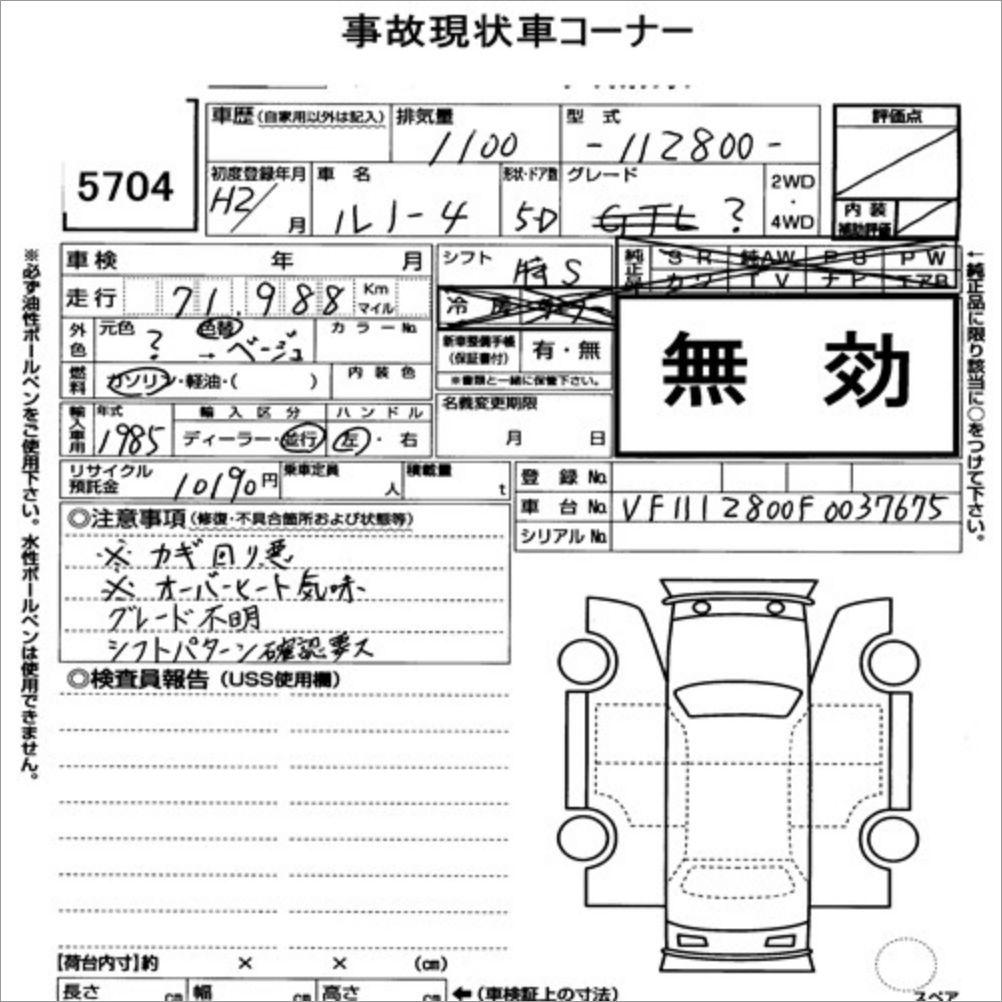 事故現状車コーナー
車歴(自家用以外は記入) 排気量 型式 評価点
1100 -112800-
5704
初度登録年月 車名 形状・ドア数 グレード 2WD・4WD
H2/ 月 ルノー4 5D GTL ? 内装補助評価
車検 年 月 シフト 純正品 SR 純AW PS PW
カワ TV ナビ エアB
走行 71,988 Km マイル
外色 元色 ? 色替 → ベージュ カラーNo.
新車整備手帳(保証書付) 有・無
※書類と一緒に保管下さい。
無効
燃料 ガソリン・軽油・( ) 内装色
名義変更期限
月 日
輸入車用 年式 1985 輸入区分 ディーラー・並行 ハンドル 左・右
リサイクル預託金 10190円 乗車定員 人 積載量 t
登録No.
車台No. VF1112800F0037675
シリアルNo.
◎注意事項(修復・不具合箇所および状態等)
※ カギ回り悪
※ オーバーヒート気味
グレード不明
シフトパターン確認要ス
◎検査員報告(USS使用欄)
※必ず油性ボールペンをご使用下さい。水性ボールペンは使用できません。
←純正品に限り該当に○をつけて下さい。
【荷台内寸】約 × × (cm)
長さ cm 幅 cm 高さ cm ←(車検証上の寸法)
スペア